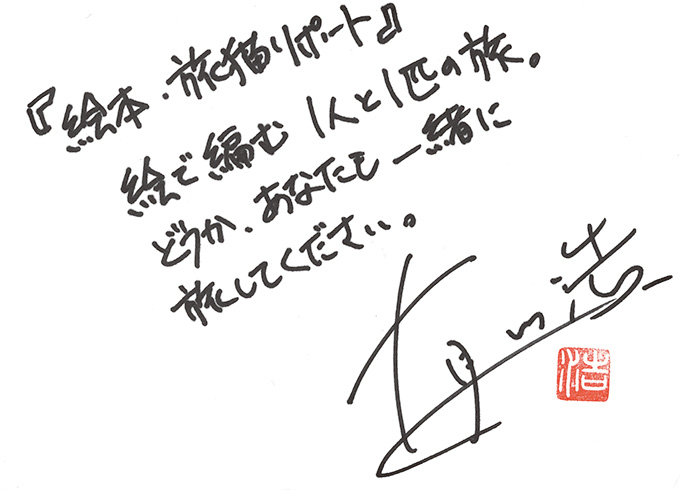 『絵本・旅猫リポート』
絵で編む 1人と1匹の旅。
どうか、あなたも一緒に
旅してください。
有川浩
浩